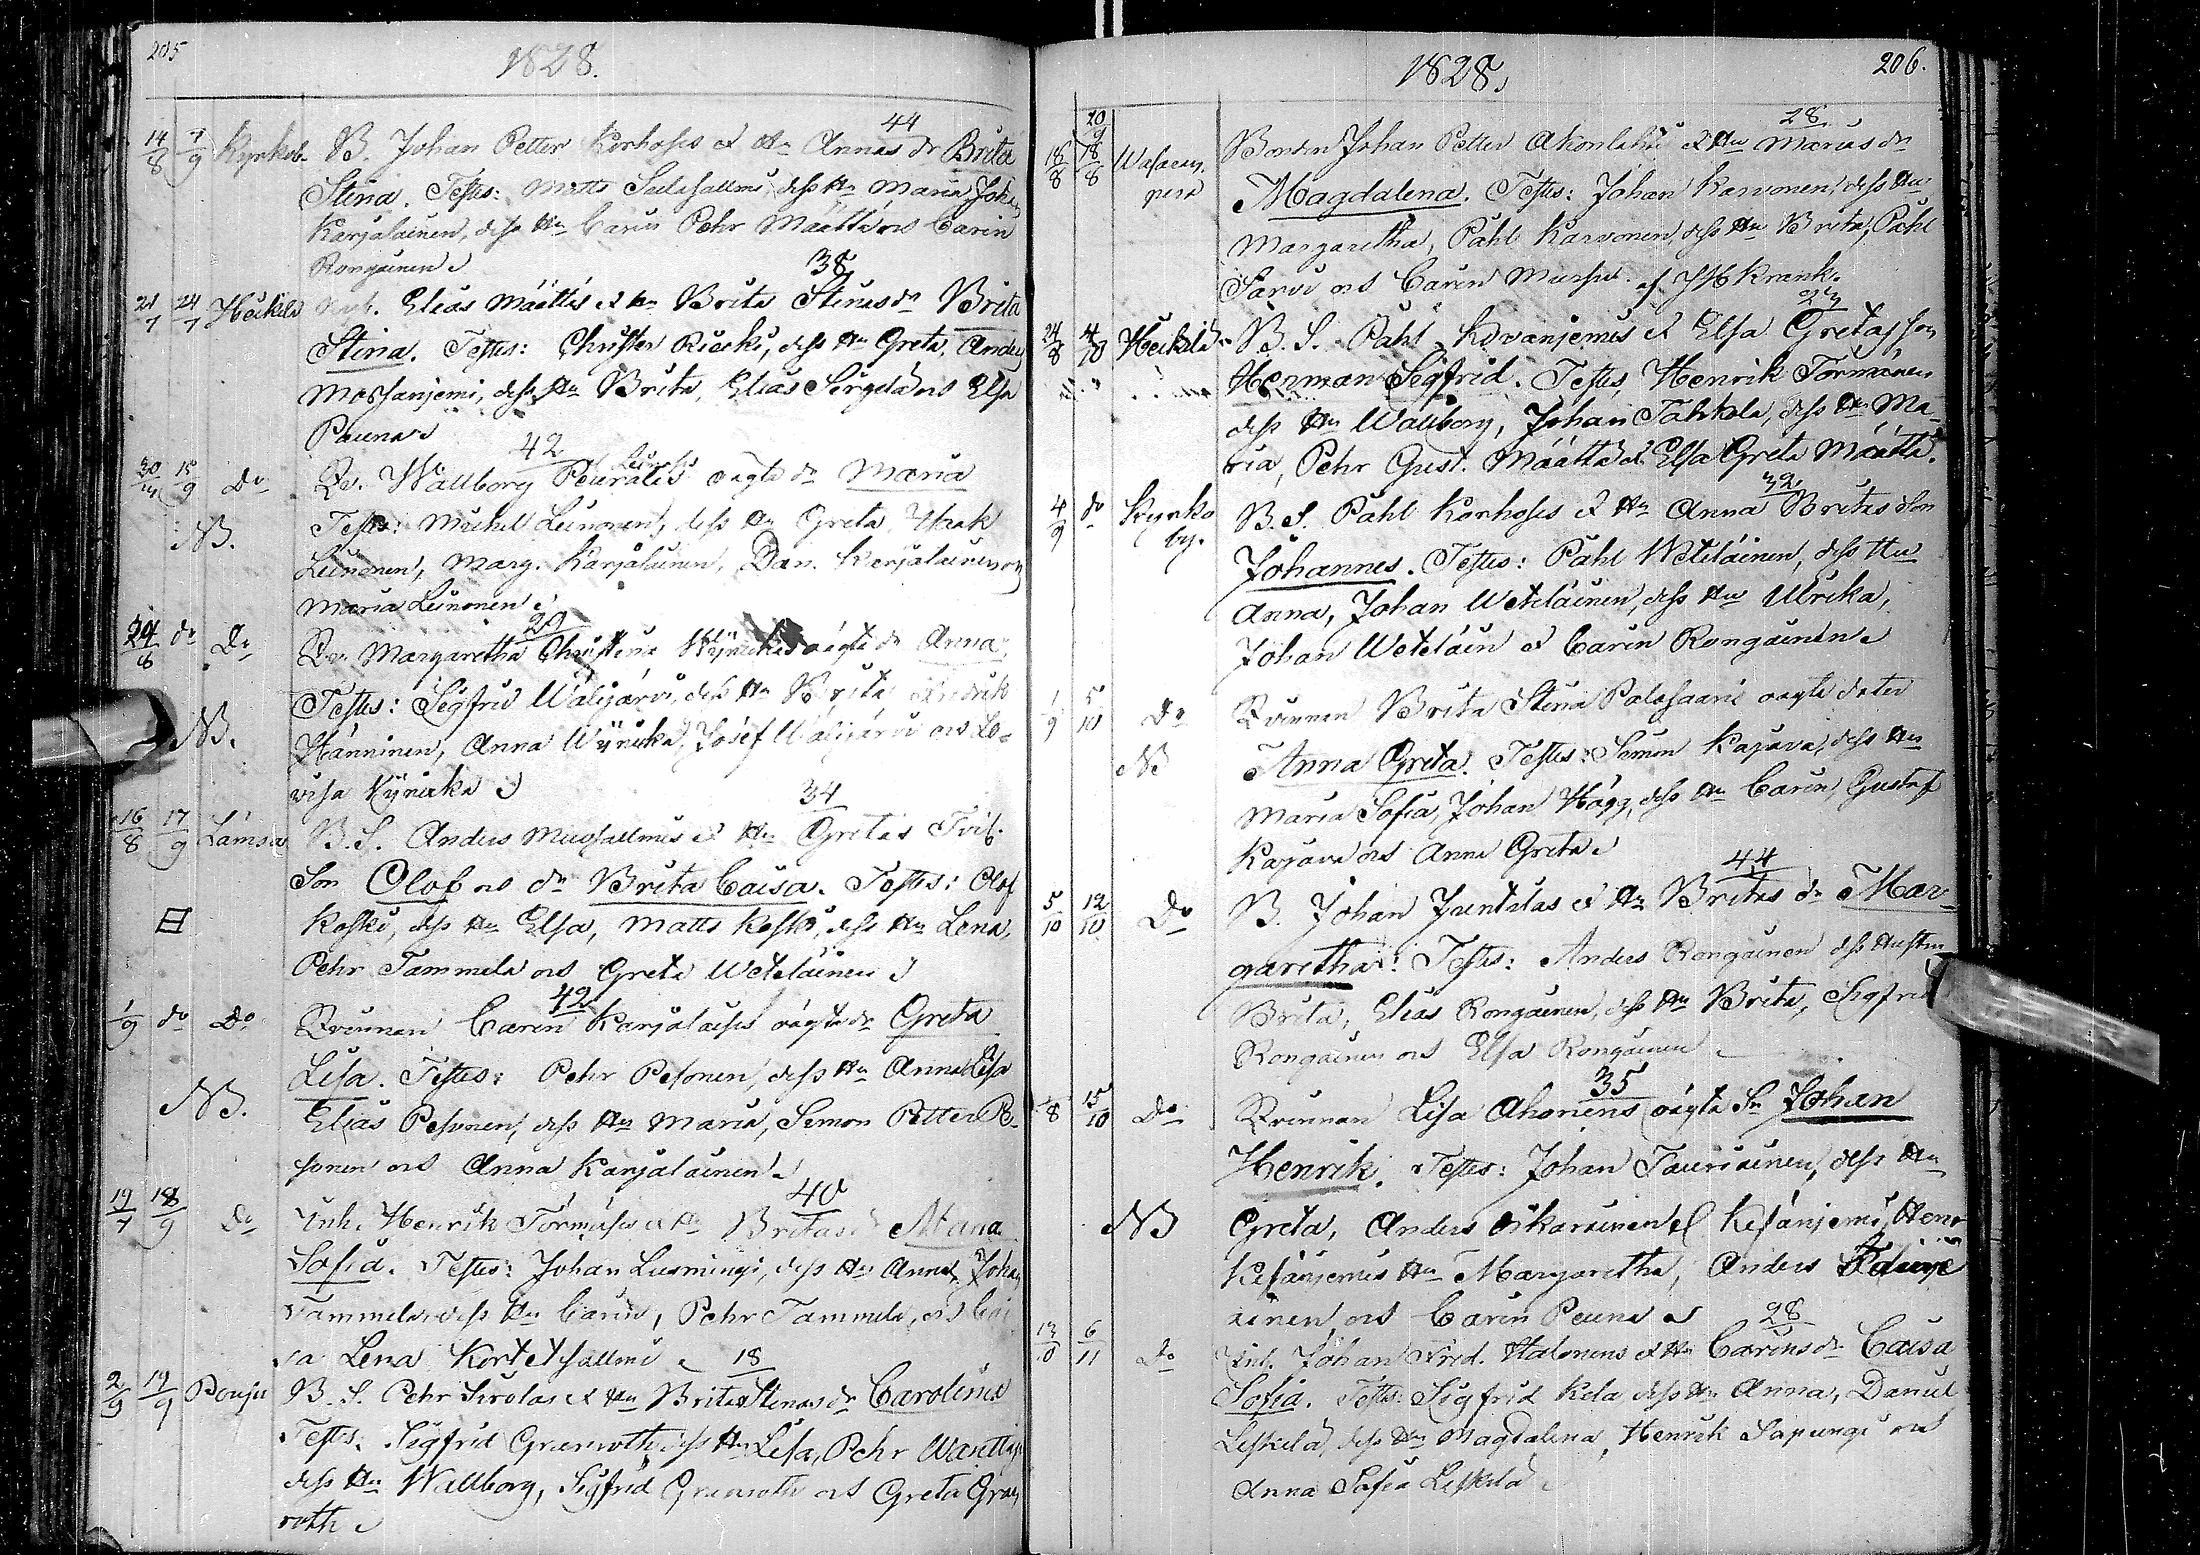 205
1828.
44
14/8 7/9 Kyrkob. B. Johan Petter Korhoses & Hu Annas dr Brita
Stina. Testes: Matts Seilesallmi, dess Hu Maria, Johan
Karjalainen, dess Hu Carin Pehr Määttä os Carin
Rongainen
38
21/7 24/7 Heikilä Elias Määttäs & Hu Brita Stinas dr Brita
Stina. Testes: Christer Rieeki, dess Hu Greta, Anders
Mossanjemi, dess Hu Brita, Elias Sirgelä os Elsa
Peuna
42
30/ 15/9 Do Qv. Wallborg oägta dr Maria
NB. Testes: Michel Leinonen, dess Hu Greta, Isaak
Leinonen, Marg. Karjalainen, Dan. Karjalainen os
Maria Leinonen
29
24/6 do Do Qv. Margaretha Christina Kynickis oägta dr Anna.
Testes: Sigfrid Walijärvi, dess Hu Brita, Fredrik
NB. Hänninen, Anna Wynicka, Josef Walijärvi os Lo-
visa Kynicka
34
16/8 17/9 Lämsä B. S. Anders Mussallmis & Hu Gretas Tvil.
Son Olof os dr Brita Caisa. Testes: Olof
Koski, dess Hu Elsa, Matts Koski, dess Hu Lena,
Pehr Tammela os Greta Weteläinen
42
1/9 do Do Qvinnan Carin Karjalaises oägta dr Greta
Lisa. Testes: Pehr Pesonen, dess Hu Anna Lisa
NB. Elias Pesonen, dess Hu Maria, Simon Petter Pe-
sonen os Anna Karjalainen
40
19/7 18/9 Do Inh. Henrik Törmäses & Hu Britas dr Maria
Sofia. Testes: Johan Lusmingi, dess Hu Anna, Johan
Tammela, dess Hu Carin, Pehr Tammela, os Cai
sa Lena Kortetsallmi
18
2/9 19/9 Pouju B. S. Pehr Sirolas & Hu Brita Stinas dr Carolina
Testes: Sigfrid Granroth, dess Hu Lisa, Pehr
dess Hu Wallborg, Sigfrid Granroth os Greta Gran
roth
206.
1828.
20/9 28
18/8 18/8 Bonden Johan Petter Akonlahti & Hu Marias dr
Magdalena. Testes: Johan Karvonen, dess Hu
Margaretha, Påhl Karvonen, dess Hu Brita, Påhl
Särvi os Carin af J H Krank.
24/8 4/10 Heikilä B. S. Påhl Kovanjemis & Elsa Gretas son
Herman Sigfrid. Testes, Henrik Törmänen
dess Hu Wallborg, Johan Tahkola, dess Hu Ma-
ria, Pehr Gust. Määttä & Elsa Greta Määttä.
32
4/9 do Kyrko B. S. Påhl Korhoses & Hu Anna Britas Son
by. Johannes. Testes: Påhl Weteläinen, dess Hu
Anna, Johan Weteläinen, dess Hu Ulrika,
Johan Weteläin & Carin Rongainen
1/9 5/10 Do Qvinnan Brita Stina Palosaaris oägta dotter
NB Anna Greta. Testes: Simon Kajava, dess Hu
Maria Sofia, Johan Hägg, dess Hu Carin, Gustaf
Kajava os Anna Greta
44
5/10 12/10 Do B. Johan Juntulas & Hu Britas dr Mar-
garetha. Testes: Anders Rongainen dess Hustru
Brita, Elias Rongainen, dess Hu Brita, Sigfrid
Rongainen os Elsa Rongainen
35
/8 15/10 Do Qvinnan Lisa Ahonens oägta Sn Johan
Henrik. Testes: Johan Tauriainen, dess Hu
NB Greta, Anders Kesänjemi, Henr
Kesänjemis Hu Margaretha, Anders
ainen os Carin Peuna
28
13/10 6/11 Do Inh. Johan Fred. Halonens & Hu Carins dr Caisa
Sofia. Testes: Sigfrid Kela dess Hu Anna, Daniel
Leskelä, dess Hu Magdalena, Henrik Sapungi os
Anna Sofia Leskelä